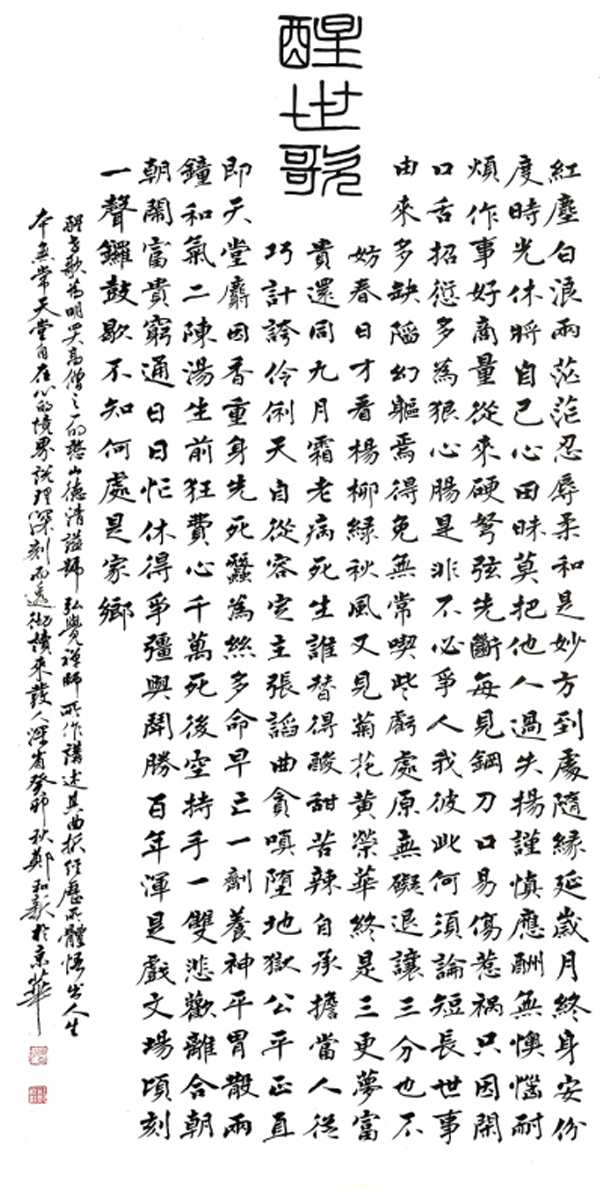 醒世歌
紅塵白浪兩茫茫忍辱柔和是妙方到處隨緣延歲月終身安份
度時光休將自己心田昧莫把他人過失揚謹慎應酬無懊惱耐
煩作事好商量從來硬弩弦先斷每見鋼刀口易傷惹禍只因閑
口舌招愆多為狠心腸是非不必爭人我彼此何須論短長世事
由來多缺陷幻軀焉得免無常喫些虧處原無礙退讓三分也不
妨春日才看楊柳綠秋風又見菊花黃榮華終是三更夢富
貴還同九月霜老病死生誰替得酸甜苦辣自承擔當人從
巧計誇伶俐天自從容定主張諂曲貪嗔墮地獄公平正直
即天堂麝因香重身先死蠶為絲多命早亡一劑養神平胃散兩
鐘和氣二陳湯生前狂費心千萬死後空持手一雙悲歡離合朝
朝鬧富貴窮通日日忙休得爭彊與鬥勝百年渾是戲文場頃刻
一聲鑼鼓歇不知何處是家鄉
醒世歌為明四大高僧之一的憨山德清謚號弘覺禪師所作講述其曲折經歷所體悟出人生
本無常天堂自在心的境界說理深刻而透徹讀來發人深省癸卯秋鄭和於京華